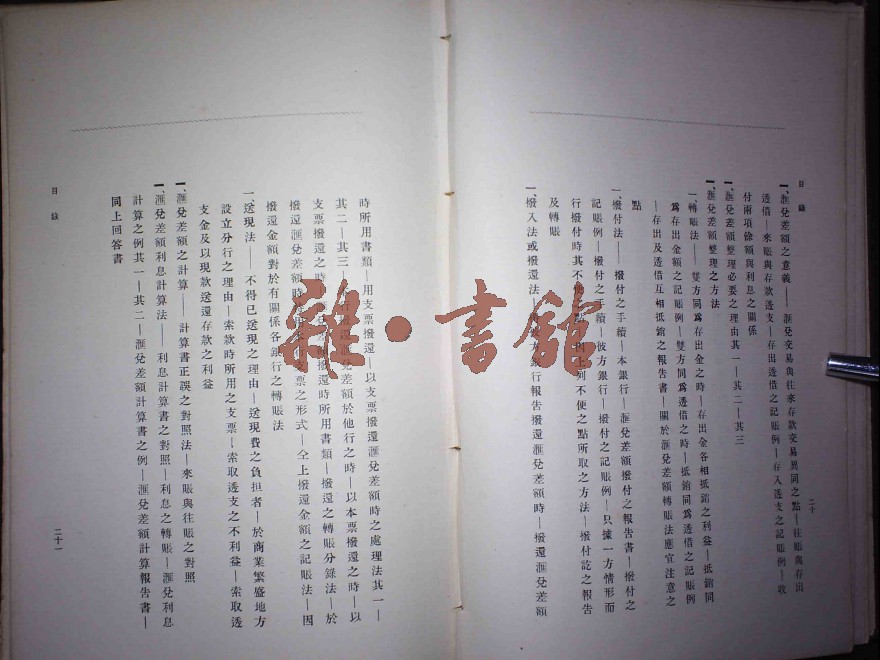 目錄
二十
一、滙兌差額之意義——滙兌交易與往來存款交易異同之點—往賬與存出
透借—來賬與存款透支—存出透借之記賬例—存入透支之記賬例—收
付兩項餘額與利息之關係
一、滙兌差額整理必要之理由其一—其二—其三
一、滙兌差額整理之方法
一、轉賬法——雙方同爲存出金之時—存出金各相抵銷之利益—抵銷同
爲存出金額之記賬例—雙方同爲透借之時—抵銷同爲透借之記賬例
—存出及透借互相抵銷之報告書—關於滙兌差額轉賬法應宜注意之
點
一、撥付法——撥付之手續—本銀行—滙兌差額撥付之報告書—撥付之
記賬例—撥付之手續—彼方銀行—撥付之記賬例—只據一方情形而
行撥付時其不便之點—因上列不便之點所取之方法—撥付訖之報告
及轉賬
一、撥入法或撥還法—銀行報告撥還滙兌差額時—撥還滙兌差額
目錄
二十一
時所用書類—用支票撥還—以支票撥還滙兌差額時之處理法其一—
其二—其三—撥還滙兌差額於他行之時—以本票撥還之時—以
支票撥還之時—撥還時所用書類—撥還之轉賬分錄法—於
撥還滙兌差額時支票之形式—仝上撥還金額之記賬法—因
撥還金額對於有關係各銀行之轉賬法
一、送現法——不得已送現之理由—送現費之負担者—於商業繁盛地方
設立分行之理由—索款時所用之支票—索取透支之不利益—索取透
支金及以現款送還存款之利益
一、滙兌差額之計算——計算書正誤之對照法—來賬與往賬之對照
一、滙兌差額利息計算法——利息計算書之對照—利息之轉賬—滙兌利息
計算之例其一—其二—滙兌差額計算書之例—滙兌差額計算報告書—
同上回答書
雜·書館